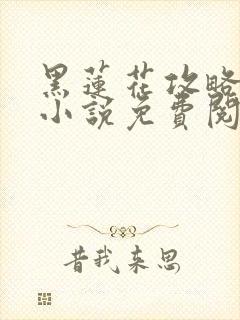 黑蓮花攻略
小說免費閱
昔我来思